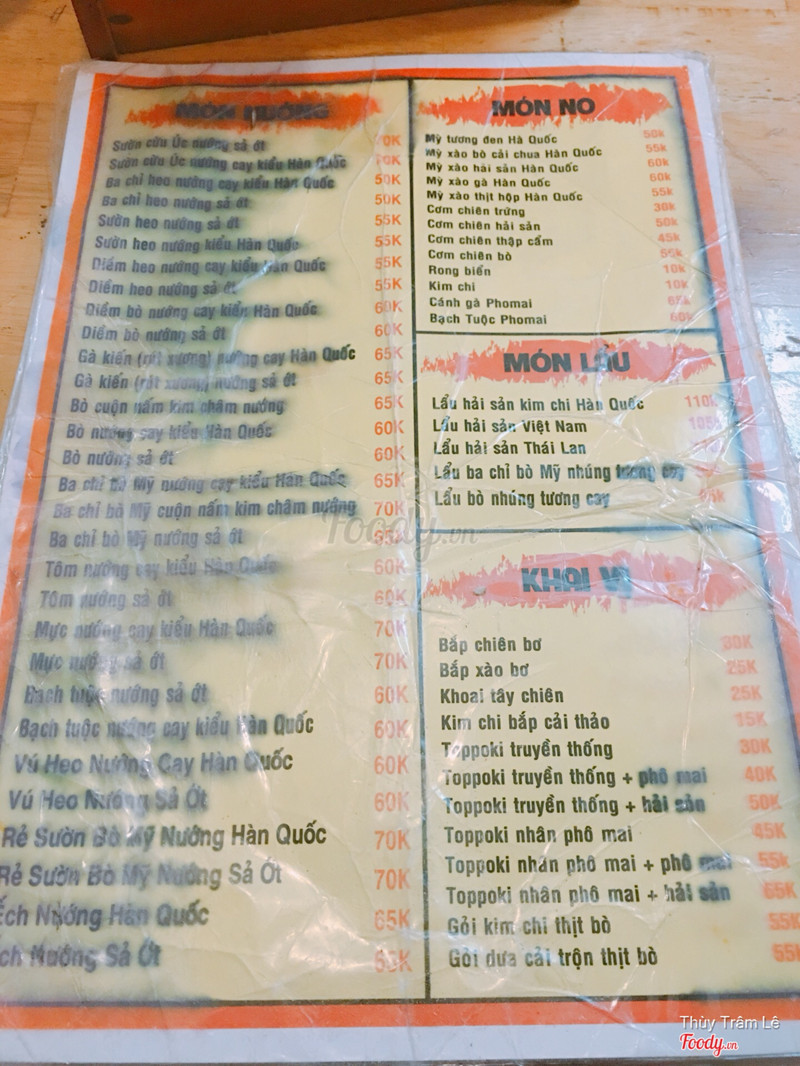 MÓN NƯỚNG
Sườn cừu Úc nướng sả ớt 70K
Sườn cừu Úc nướng cay kiểu Hàn Quốc 70K
Ba chỉ heo nướng cay kiểu Hàn Quốc 50K
Ba chỉ heo nướng sả ớt 50K
Sườn heo nướng sả ớt 55K
Sườn heo nướng kiểu Hàn Quốc 55K
Diềm heo nướng cay kiểu Hàn Quốc 55K
Diềm heo nướng sả ớt 55K
Diềm bò nướng cay kiển Hàn Quốc 60K
Diềm bò nướng sả ớt 60K
Gà kiến (rút xương) nướng cay Hàn Quốc 65K
Gà kiến (rút xương) nướng sả ớt 65K
Bò cuộn nấm kim châm nướng 65K
Bò nướng cay kiểu Hàn Quốc 60K
Bò nướng sả ớt 60K
Ba chỉ bò Mỹ nướng cay kiểu Hàn Quốc 65K
Ba chỉ bò Mỹ cuộn nấm kim châm nướng 70K
Ba chỉ bò Mỹ nướng sả ớt 65K
Tôm nướng cay kiểu Hàn Quốc 60K
Tôm nướng sả ớt 60K
Mực nướng cay kiểu Hàn Quốc 70K
Mực nướng sả ớt 70K
Bạch tuộc nướng sả ớt 60K
Bạch tuộc nướng cay kiểu Hàn Quốc 60K
Vú Heo Nướng Cay Hàn Quốc 60K
Vú Heo Nướng Sả Ớt 60K
Rẻ Sườn Bò Mỹ Nướng Hàn Quốc 70K
Rẻ Sườn Bò Mỹ Nướng Sả Ớt 70K
Ếch Nướng Hàn Quốc 65K
ch Nướng Sả Ớt 65K
MÓN NO
Mỳ tương đen Hà Quốc 50k
Mỳ xào bò cải chua Hàn Quốc 55k
Mỳ xào hải sản Hàn Quốc 60k
Mỳ xào gà Hàn Quốc 60k
Mỳ xào thịt hộp Hàn Quốc 55k
Cơm chiên trứng 30k
Cơm chiên hải sản 50k
Cơm chiên thập cẩm 45k
Cơm chiên bò 55k
Rong biển 10k
Kim chi 10k
Cánh gà Phomai 65k
Bạch Tuộc Phomai 60k
MÓN LẨU
Lẩu hải sản kim chi Hàn Quốc 110k
Lẩu hải sản Việt Nam 105k
Lẩu hải sản Thái Lan
Lẩu ba chỉ bò Mỹ nhúng tương cay
Lẩu bò nhúng tương cay
KHAI VỊ
Bắp chiên bơ 30K
Bắp xào bơ 25K
Khoai tây chiên 25K
Kim chi bắp cải thảo 15K
Toppoki truyền thống 30K
Toppoki truyền thống + phô mai 40K
Toppoki truyền thống + hải sản 50K
Toppoki nhân phô mai 45K
Toppoki nhân phô mai + phô mai 55k
Toppoki nhân phô mai + hải sản 65K
Gỏi kim chi thịt bò 55K
Gỏi dưa cải trộn thịt bò 55k
Foody.vn
Thùy Trâm Lê
Foody.vn